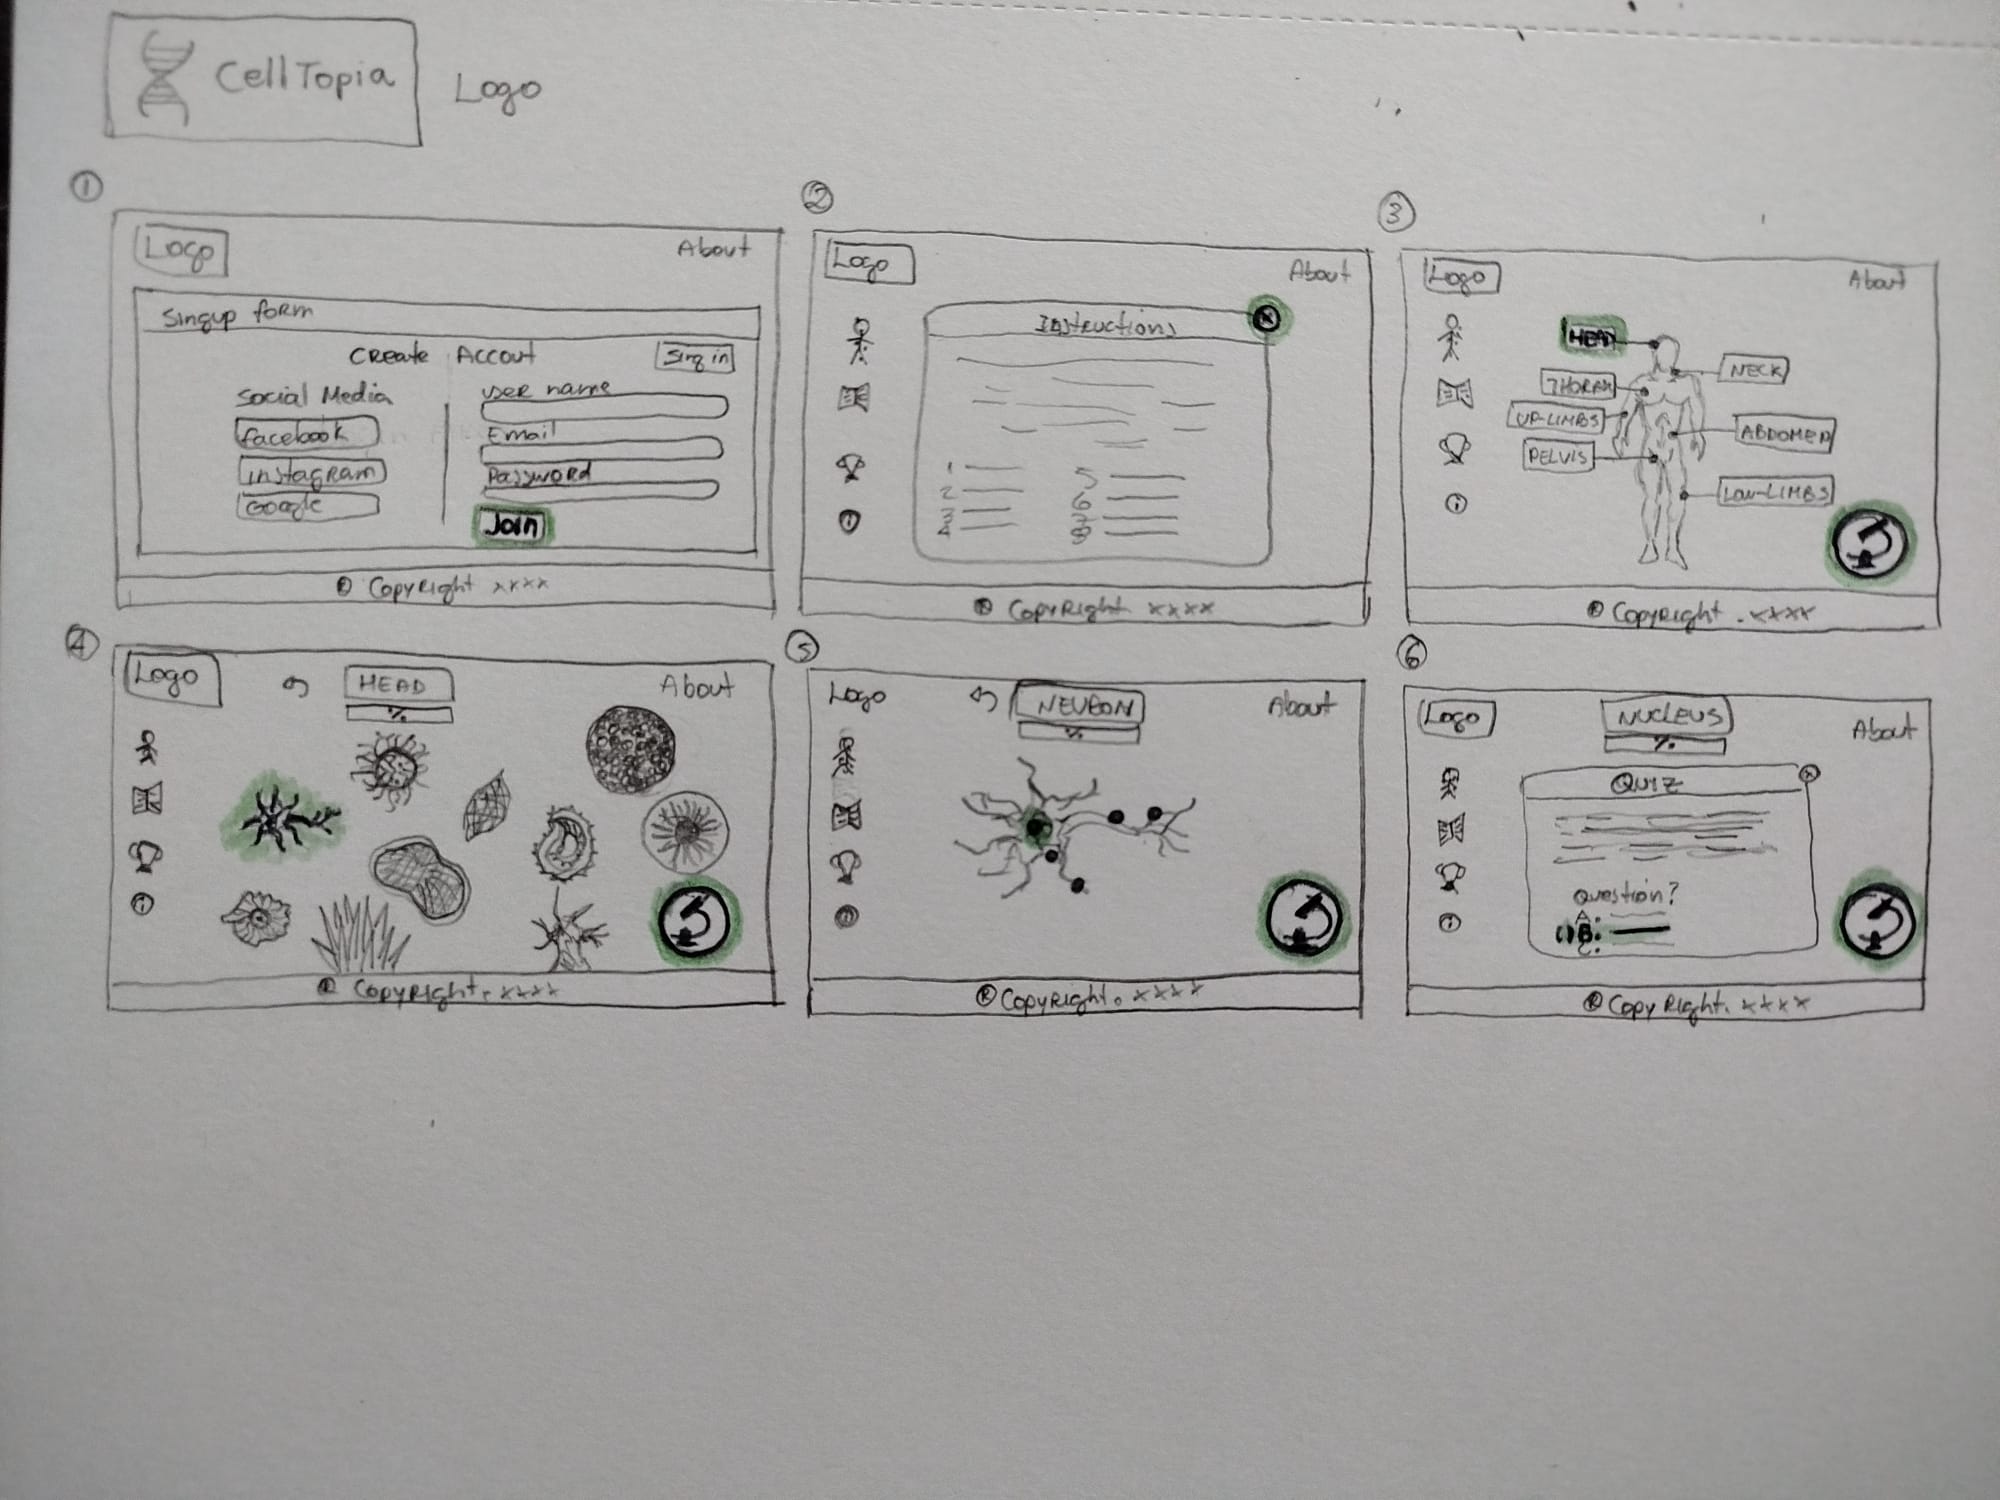 CellTopia
Logo
1
Logo
About
Singup form
Create Accout
Sing in
Social Media
facebook
instagram
Google
user name
Email
Password
Join
® CopyRight xxxx
2
Logo
About
Instructions
x
1
2
3
4
5
6
7
8
® CopyRight. xxxx
3
Logo
About
HEAD
NECK
THORAX
UP-LIMBS
ABDOMEN
PELVIS
LOW-LIMBS
i
® CopyRight. xxxx
4
Logo
HEAD
%
About
i
® CopyRight. xxxx
5
Logo
NEURON
%
About
® CopyRight. xxxx
6
Logo
NUCLEUS
%
About
QUIZ
x
Question?
A:
B:
C:
i
® CopyRight. xxxx